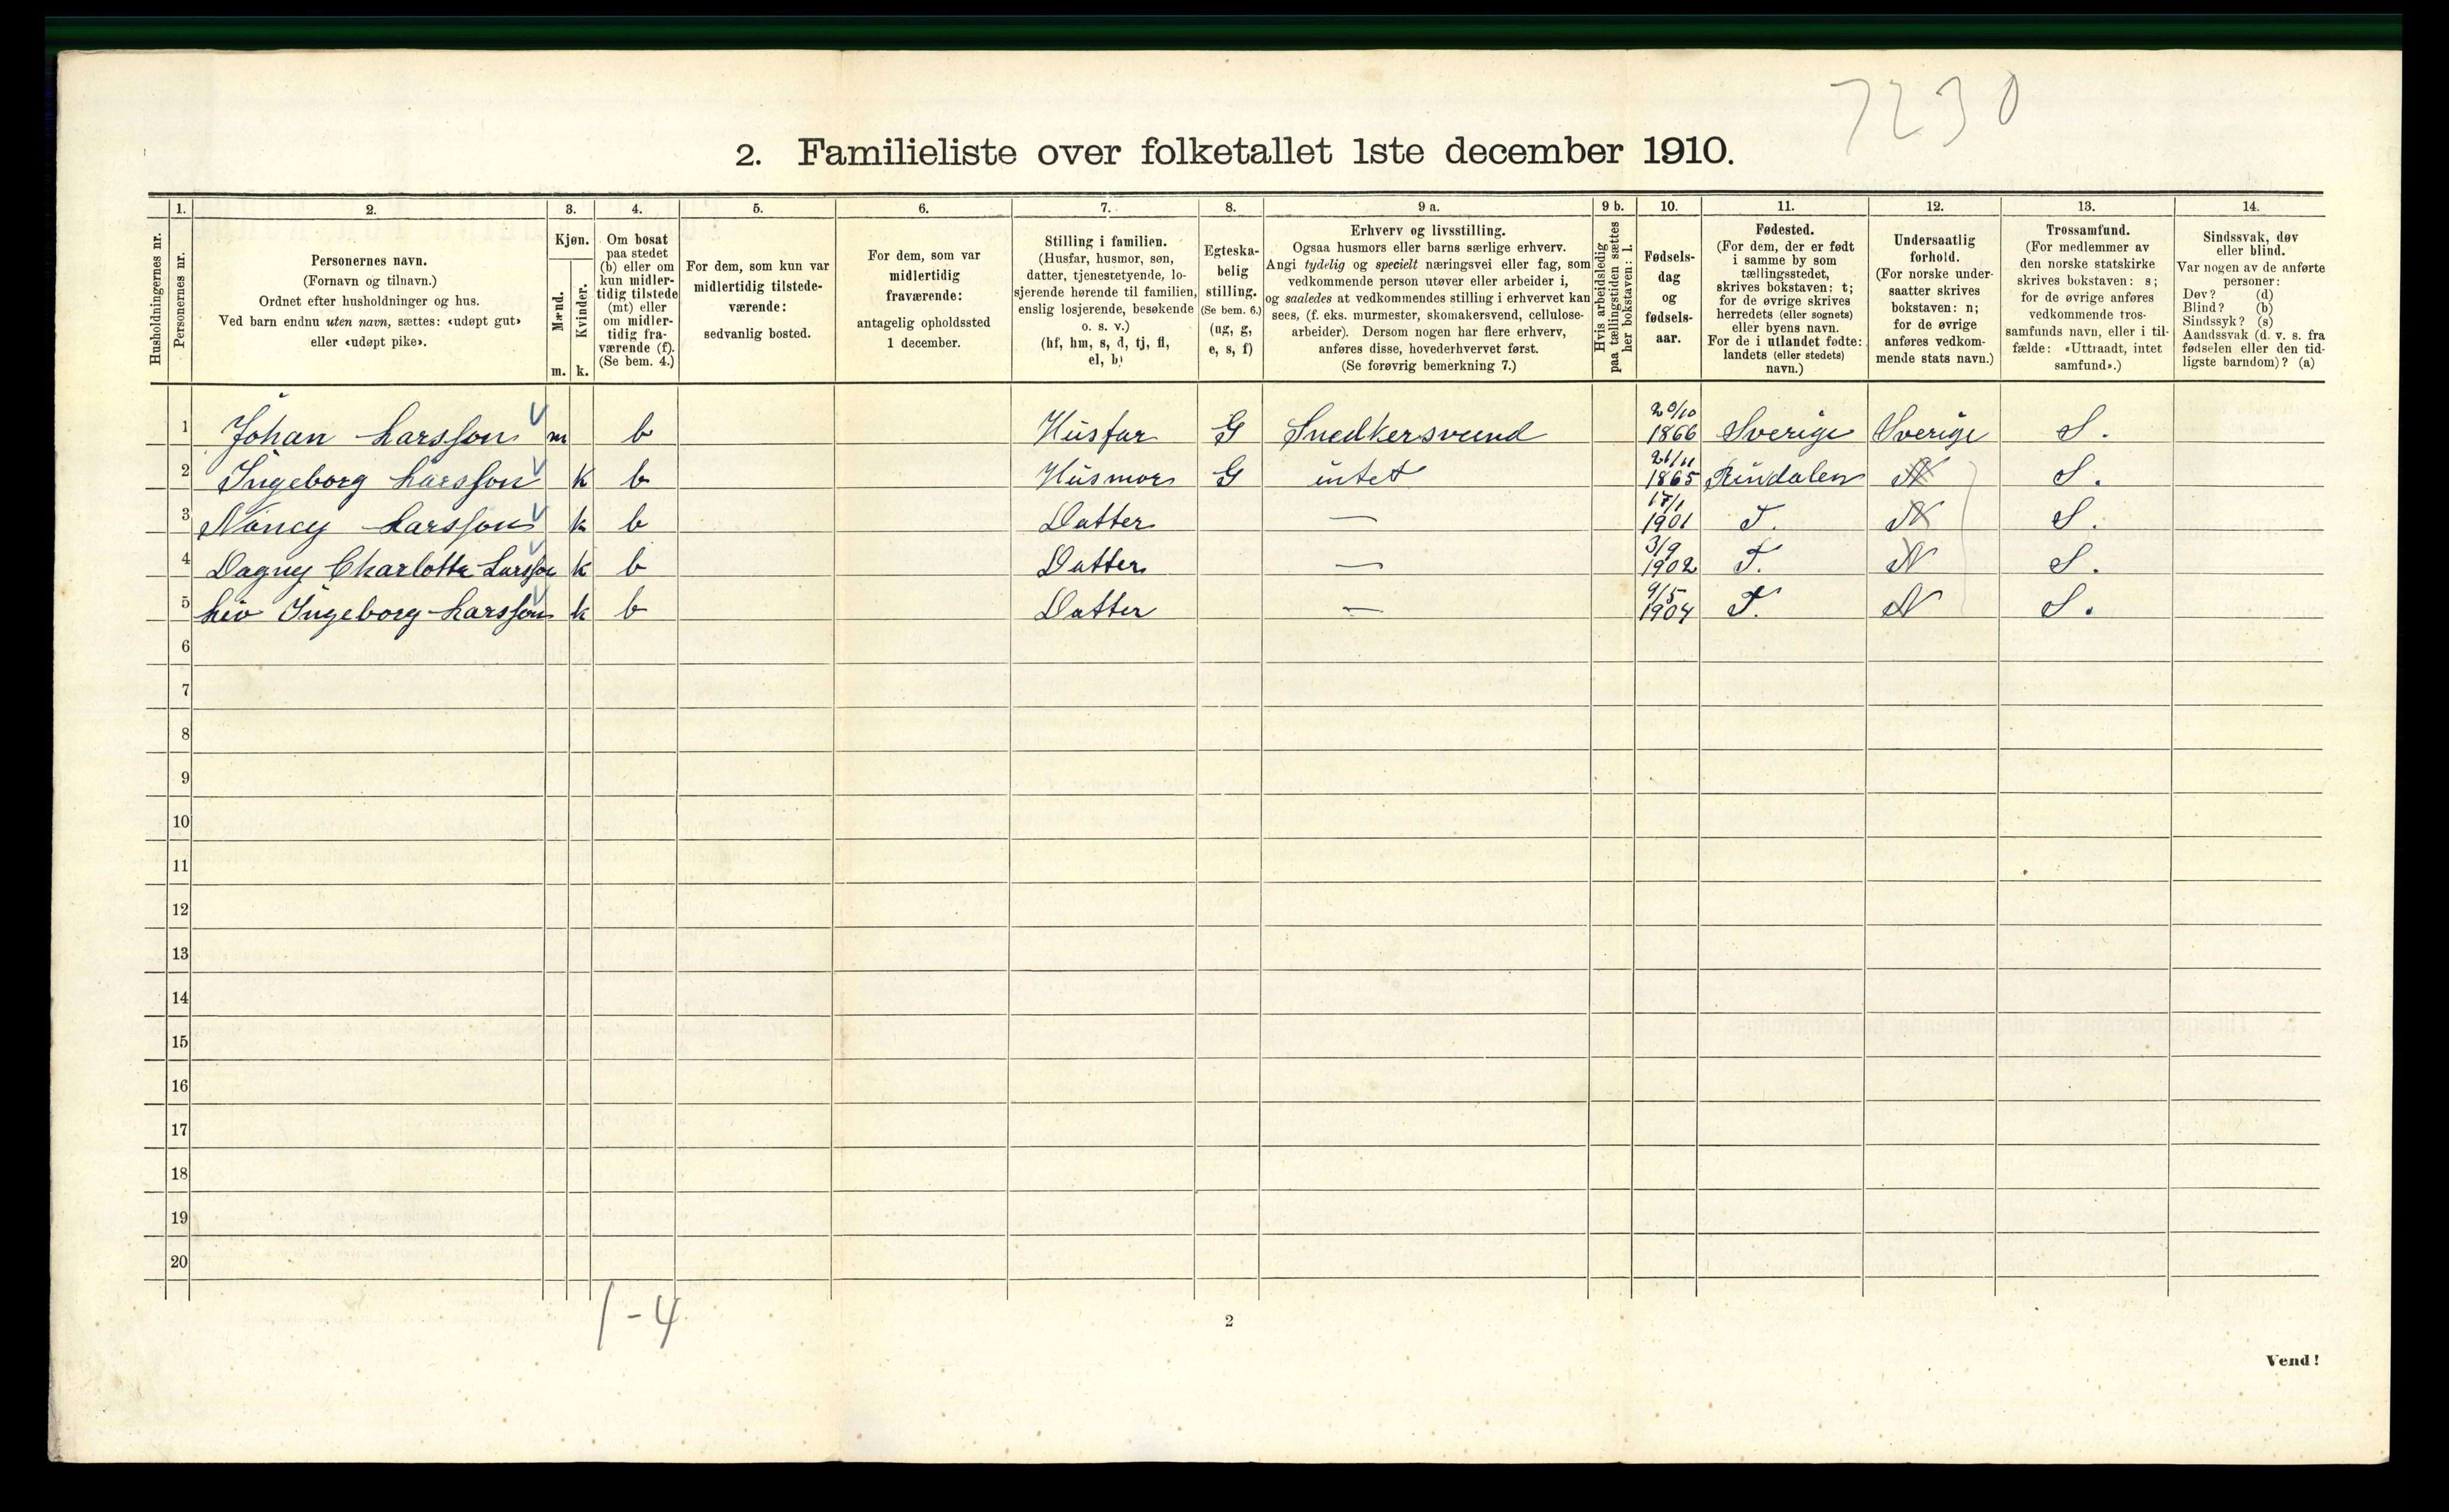 7230
2. Familieliste over folketallet 1ste december 1910.
1. 2. 3. 4. 5. 6. 7. 8. 9 a. 9 b. 10. 11. 12. 13. 14.
Husholdningernes nr.
Personernes nr.
Personernes navn.
(Fornavn og tilnavn.)
Ordnet efter husholdninger og hus.
Ved barn endnu uten navn, sættes: «udøpt gut»
eller «udøpt pike».
Kjøn.
Mænd.
Kvinder.
m. k.
Om bosat
paa stedet
(b) eller om
kun midler-
tidig tilstede
(mt) eller
om midler-
tidig fra-
værende (f).
(Se bem. 4.)
For dem, som kun var
midlertidig tilstede-
værende:
sedvanlig bosted.
For dem, som var
midlertidig
fraværende:
antagelig opholdssted
1 december.
Stilling i familien.
(Husfar, husmor, søn,
datter, tjenestetyende, lo-
sjerende hørende til familien,
enslig losjerende, besøkende
o. s. v.)
(hf, hm, s, d, tj, fl,
el, b)
Egteska-
belig
stilling.
(Se bem. 6.)
(ug, g,
e, s, f)
Erhverv og livsstilling.
Ogsaa husmors eller barns særlige erhverv.
Angi tydelig og specielt næringsvei eller fag, som
vedkommende person utøver eller arbeider i,
og saaledes at vedkommendes stilling i erhvervet kan
sees, (f. eks. murmester, skomakersvend, cellulose-
arbeider). Dersom nogen har flere erhverv,
anføres disse, hovederhvervet først.
(Se forøvrig bemerkning 7.)
Hvis arbeidsledig
paa tællingstiden sættes
her bokstaven: l.
Fødsels-
dag
og
fødsels-
aar.
Fødested.
(For dem, der er født
i samme by som
tællingsstedet,
skrives bokstaven: t;
for de øvrige skrives
herredets (eller sognets)
eller byens navn.
For de i utlandet fødte:
landets (eller stedets)
navn.)
Undersaatlig
forhold.
(For norske under-
saatter skrives
bokstaven: n;
for de øvrige
anføres vedkom-
mende stats navn.)
Trossamfund.
(For medlemmer av
den norske statskirke
skrives bokstaven: s;
for de øvrige anføres
vedkommende tros-
samfunds navn, eller i til-
fælde: «Uttraadt, intet
samfund».)
Sindssvak, døv
eller blind.
Var nogen av de anførte
personer:
Døv? (d)
Blind? (b)
Sindssyk? (s)
Aandssvak (d. v. s. fra
fødselen eller den tid-
ligste barndom)? (a)
1 Johan Larsson m b Husfar G Snedkersvend 20/10 1866 Sverige Sverige S.
2 Ingeborg Larsson k b Husmor G intet 21/11 1865 Rindalen N S.
3 Nancy Larsson k b Datter — 17/1 1901 T. N S.
4 Dagny Charlotte Larsson k b Datter — 3/9 1902 T. N S.
5 Liv Ingeborg Larsson k b Datter — 9/5 1904 T. N S.
6
7
8
9
10
11
12
13
14
15
16
17
18
19
20
1-4
2
Vend!